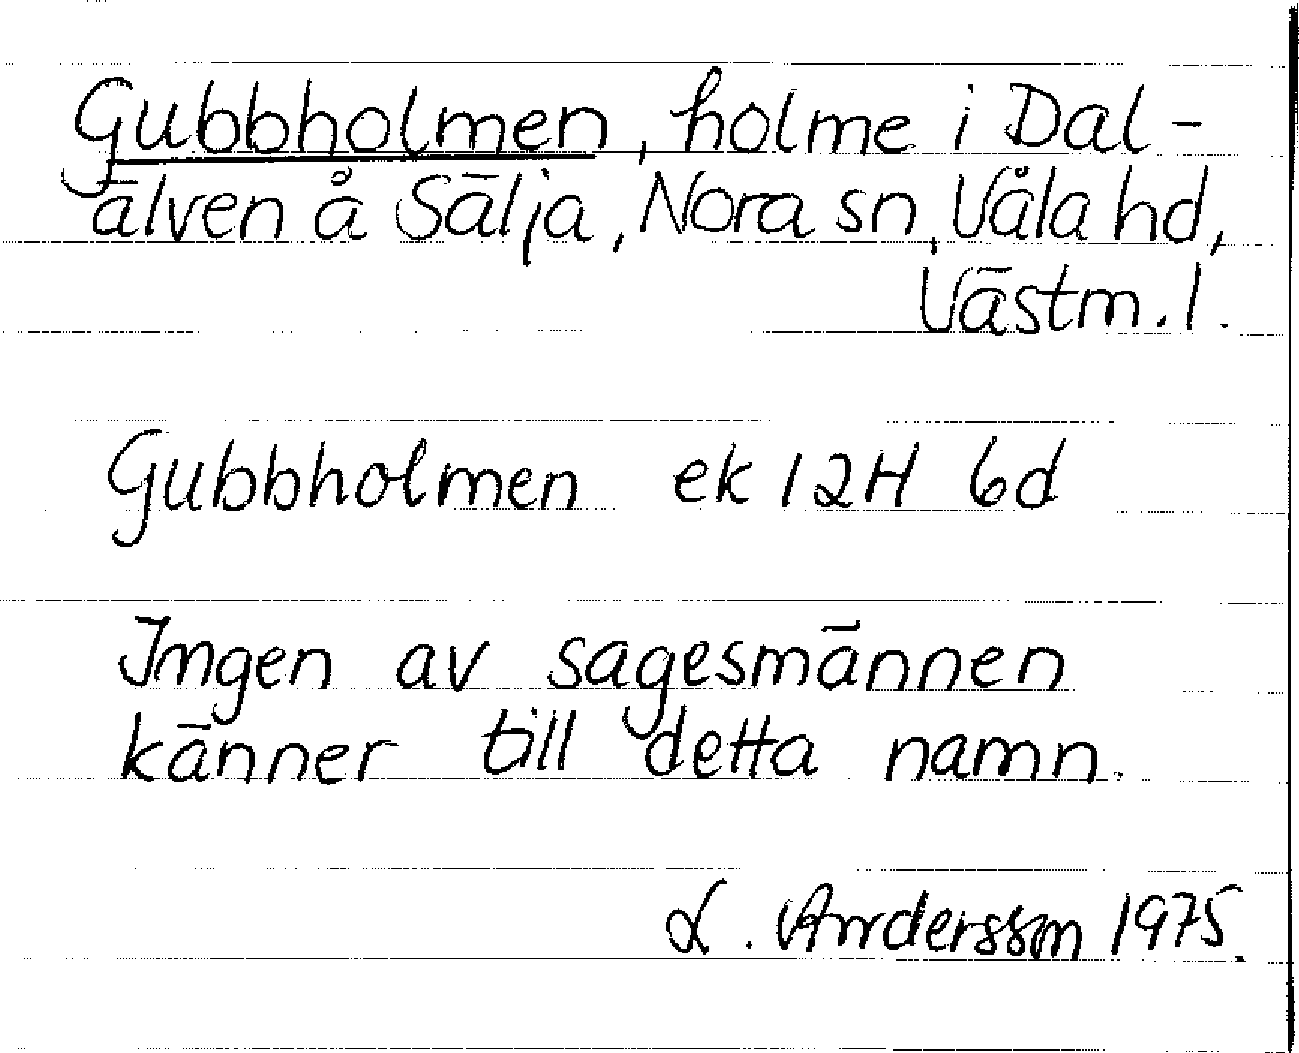 Gubbholmen, holme i Dal-
älven å Sälja, Nora sn, Våla hd,
Västm. l.
Gubbholmen ek 12H 6d
Ingen av sagesmännen
känner till detta namn.
L. Andersson 1975.